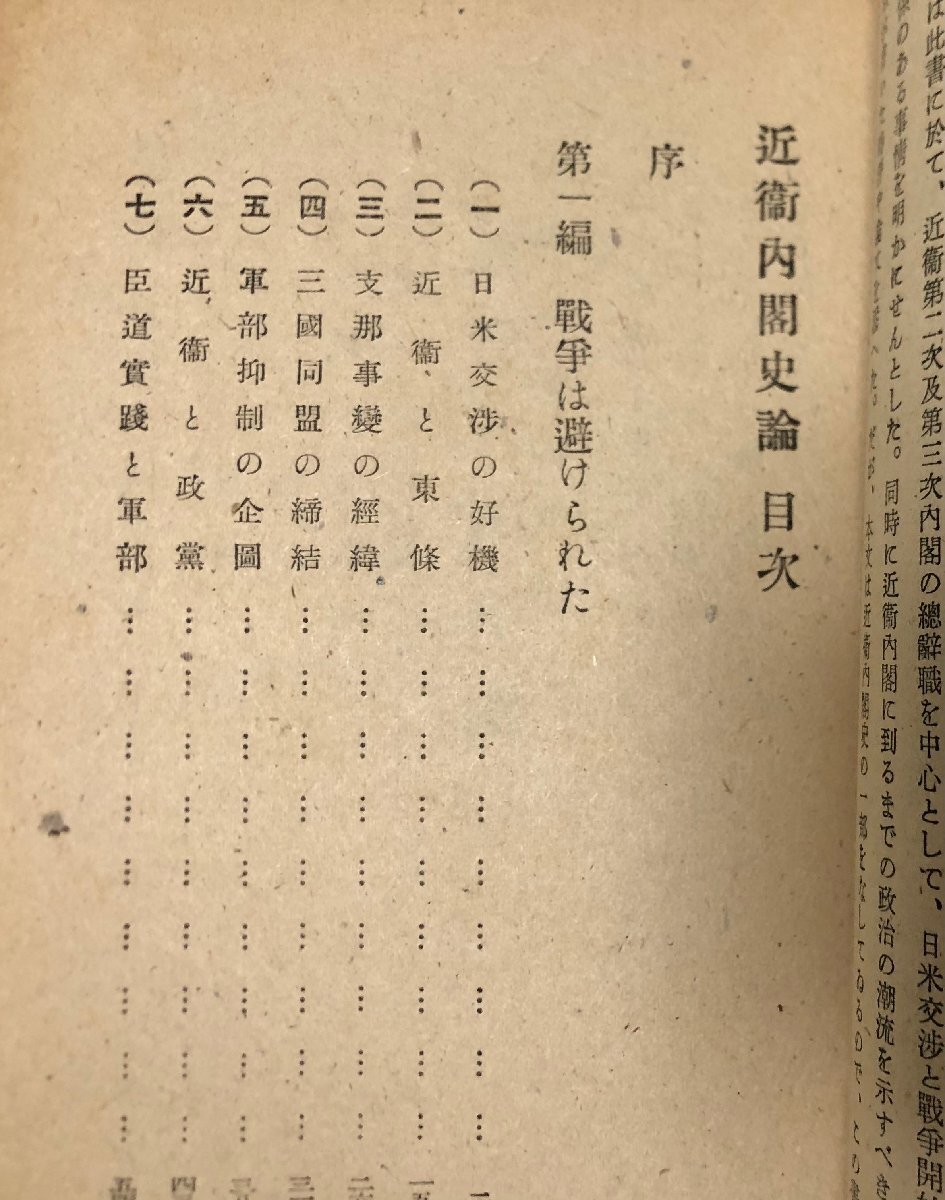 は此書に於て、近衞第二次及第三次內閣の總辭職を中心として、日米交涉と戰爭開
のある事情を明かにせんとした。同時に近衞內閣に到るまでの政治の潮流を示すべき
本文は近衞內閣史の一部をなしてゐるので、
近衞內閣史論 目次
序
第一編 戰爭は避けられた
(一) 日米交涉の好機………………………
(二) 近衞と東條………………………
(三) 支那事變の經緯………………………
(四) 三國同盟の締結………………………
(五) 軍部抑制の企圖………………………
(六) 近衞と政黨………………………
(七) 臣道實踐と軍部………………………